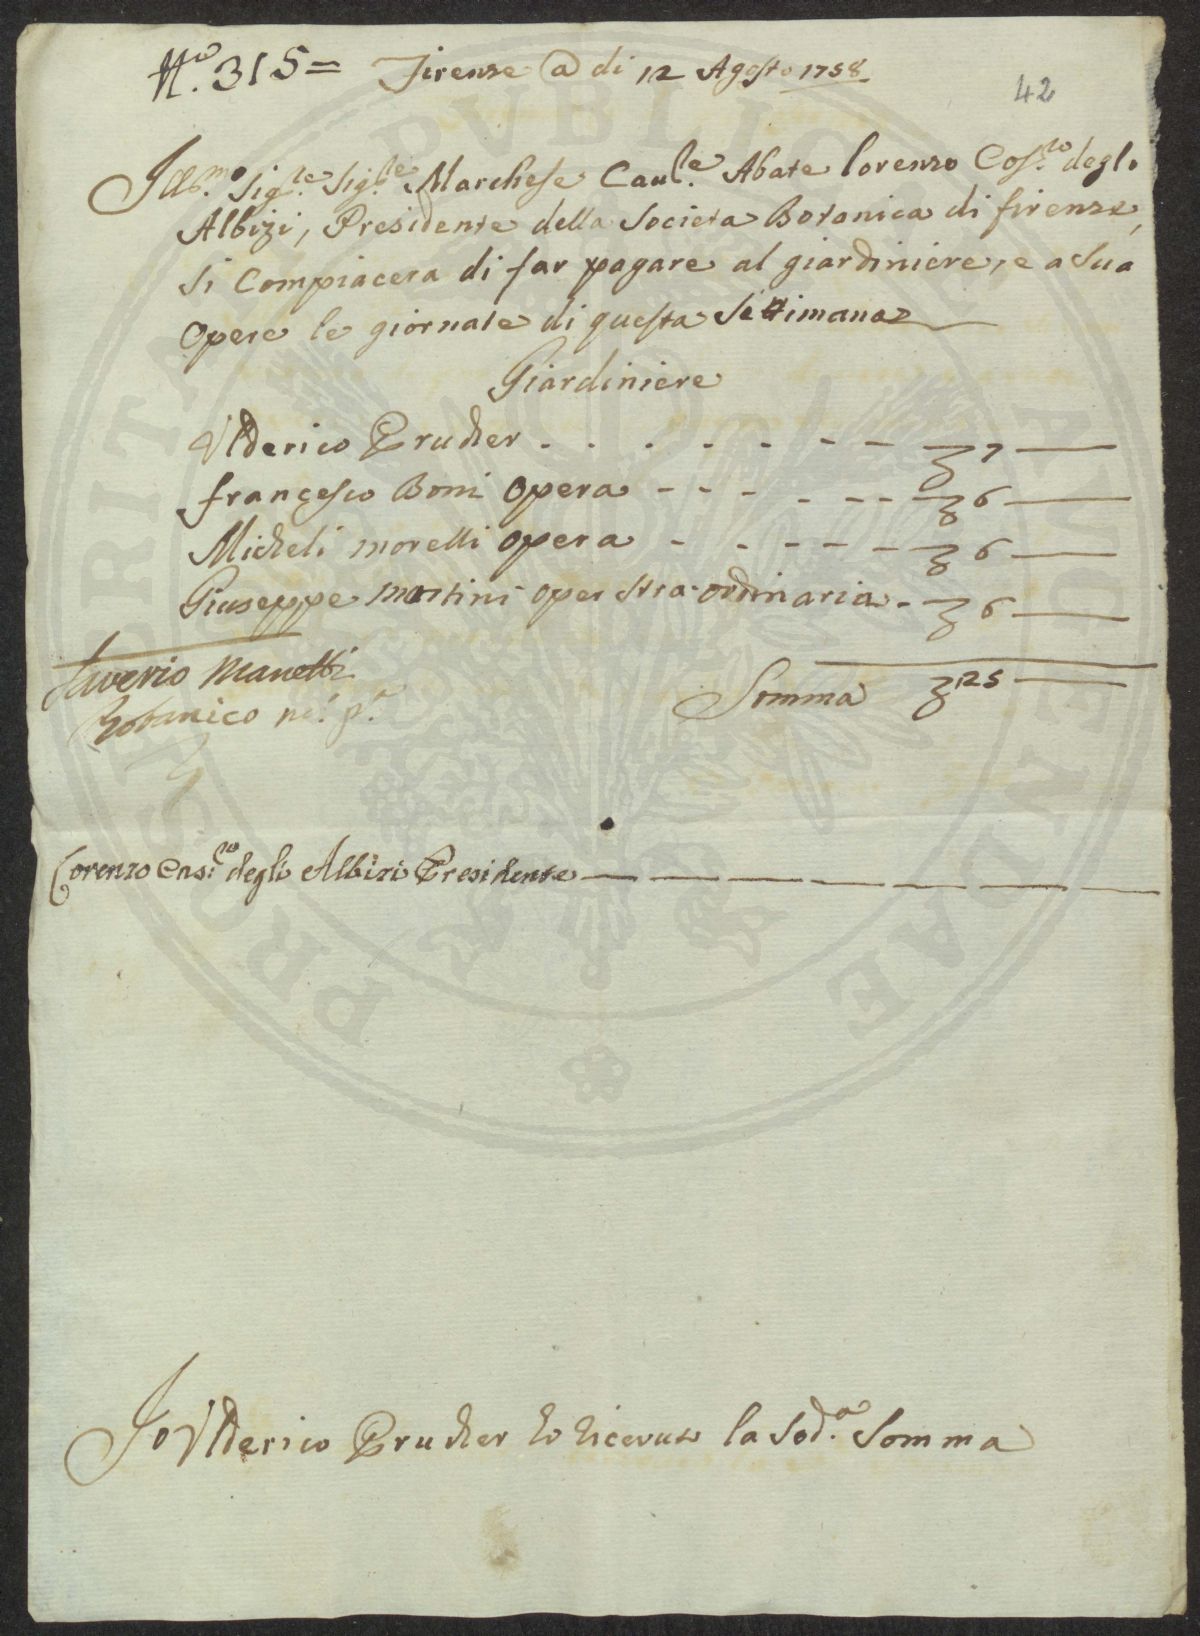 N.o 315= Firense @ di 12 Agosto 1758
42
Ill.mo Sig.re Sig.re Marchese Cau.le Abate lorenso Cos.mo degl.
Albizi, Presidente della Societa Botanica di firense,
si Compiacera di far pagare al giardiniere, e a Sua
Opere le giornate di questa Settimana
Giardiniere
Ulderico Prucher - - - - - - - 7 —
francesco Boni Opera - - - - - - 6 —
Micheli morelli opera - - - - - 6 —
Giuseppe martini oper stra-ordinaria - 6 —
Saverio Manetti
Botanico
Somma 25 —
Lorenzo Cas.co degli Albizi Presidente — — — — — — —
Io Ulderico Prucher ho riceuuto la Sod.a Somma
PROSPERITATI PUBLICAE AUGENDAE